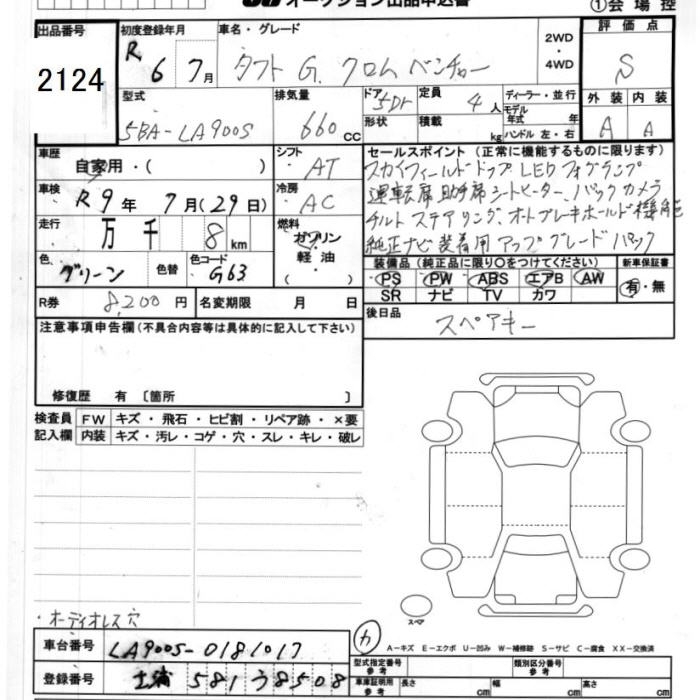 オークション出品申込書 ①会場控
出品番号 初度登録年月 車名・グレード 2WD・4WD 評価点
2124 R 6 7月 タフト G. クロムベンチャー S
型式 排気量 ドア 5Dr 定員 4人 ディーラー・並行 外装 内装
5BA-LA900S 660 cc 形状 積載 kg モデル年式 年 ハンドル 左・右 A A
車歴 自家用・( ) シフト AT セールスポイント (正常に機能するものに限ります)
スカイフィールドトップ LED フォグランプ
車検 R9年 7月(29日) 冷房 AC 運転席 助手席シートヒーター, バックカメラ
走行 万 千 8 km 燃料 ガソリン 軽油 ( ) チルトステアリング、オートブレーキホールド機能
純正ナビ装着用アップグレードパック
色 グリーン 色替 色コード G63 装備品 (純正品に限り○をつけてください) 新車保証書
PS PW ABS エアB AW 有・無
R券 8,200円 名変期限 月 日 SR ナビ TV カワ
注意事項申告欄 (不具合内容等は具体的に記入して下さい) 後日品 スペアキー
修復歴 有 〔箇所 〕
検査員記入欄 FW キズ・飛石・ヒビ割・リペア跡・×要
内装 キズ・汚レ・コゲ・穴・スレ・キレ・破レ
・オーディオレス穴 スペア
車台番号 LA900S-0181017 カ A-キズ E-エクボ U-凹み W-補修跡 S-サビ C-腐食 XX-交換済
型式指定番号 参考 類別区分番号 参考
登録番号 土浦 581 3 8508 車庫証明用 参考 長さ cm 幅 cm 高さ cm